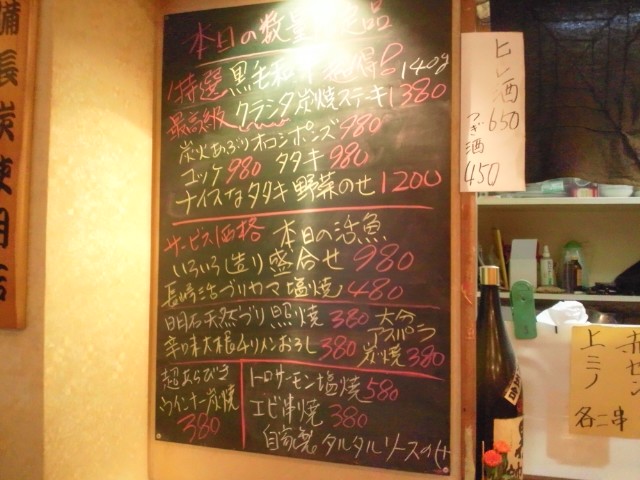 備長炭使用店
本日の数量 品
特選 黒毛和牛 得! 140g
最高級 クラシタ炭焼ステーキ 1380
炭火あぶりオロシポンズ 980
ユッケ 980 タタキ 980
ナイスなタタキ野菜のせ 1200
サービス価格 本日の活魚
いろいろ造り盛合せ 980
長崎活ブリカマ塩焼 480
明石天然ぶり照焼 380
大分アスパラ炭焼 380
辛味大根チリメンおろし 380
超あらびき
ウインナー炭焼
380
トロサーモン塩焼 580
エビ串焼 380
自家製タルタルソース
ヒレ酒
650
つぎ酒
450
赤セン
上ミノ
各二串